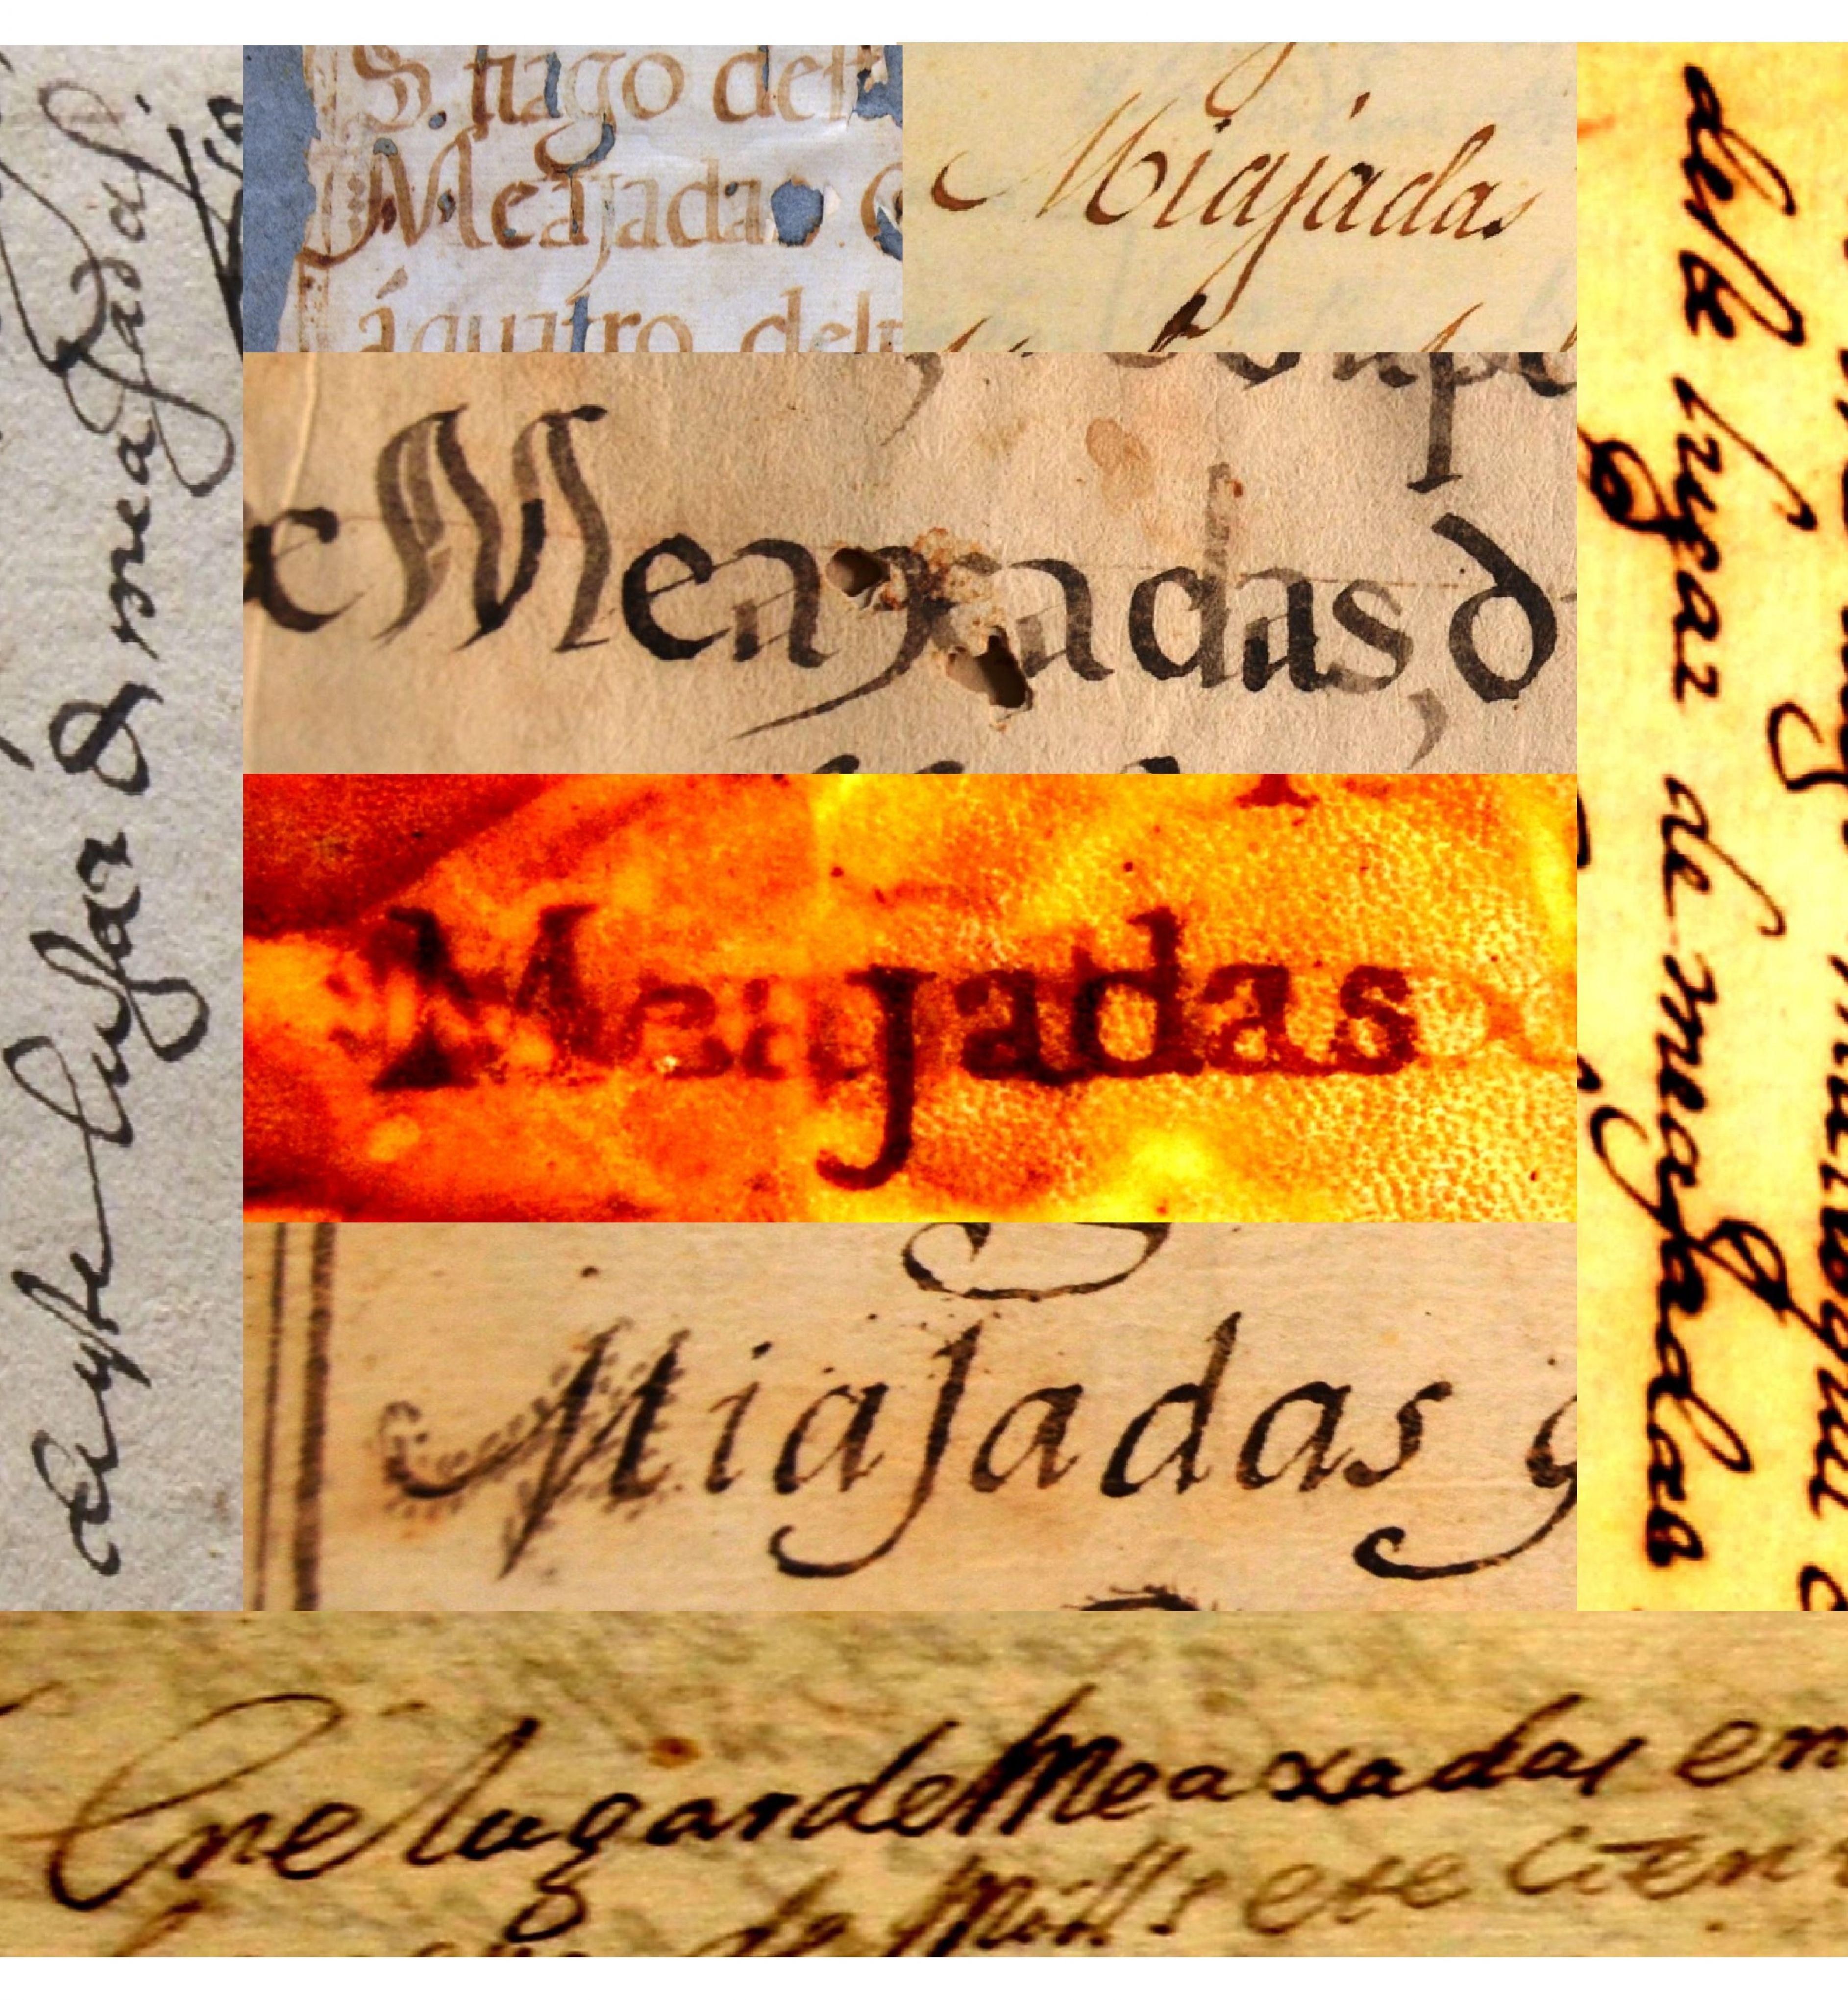 S. tiago del
Meajadas.
á quatro del
Miajadas
Meaxadas, d
Meajadas
Miajadas
lugar de meajadas
deste lugar de meajadas
En el lugar de Meaxadas en
de Mill s ete cien